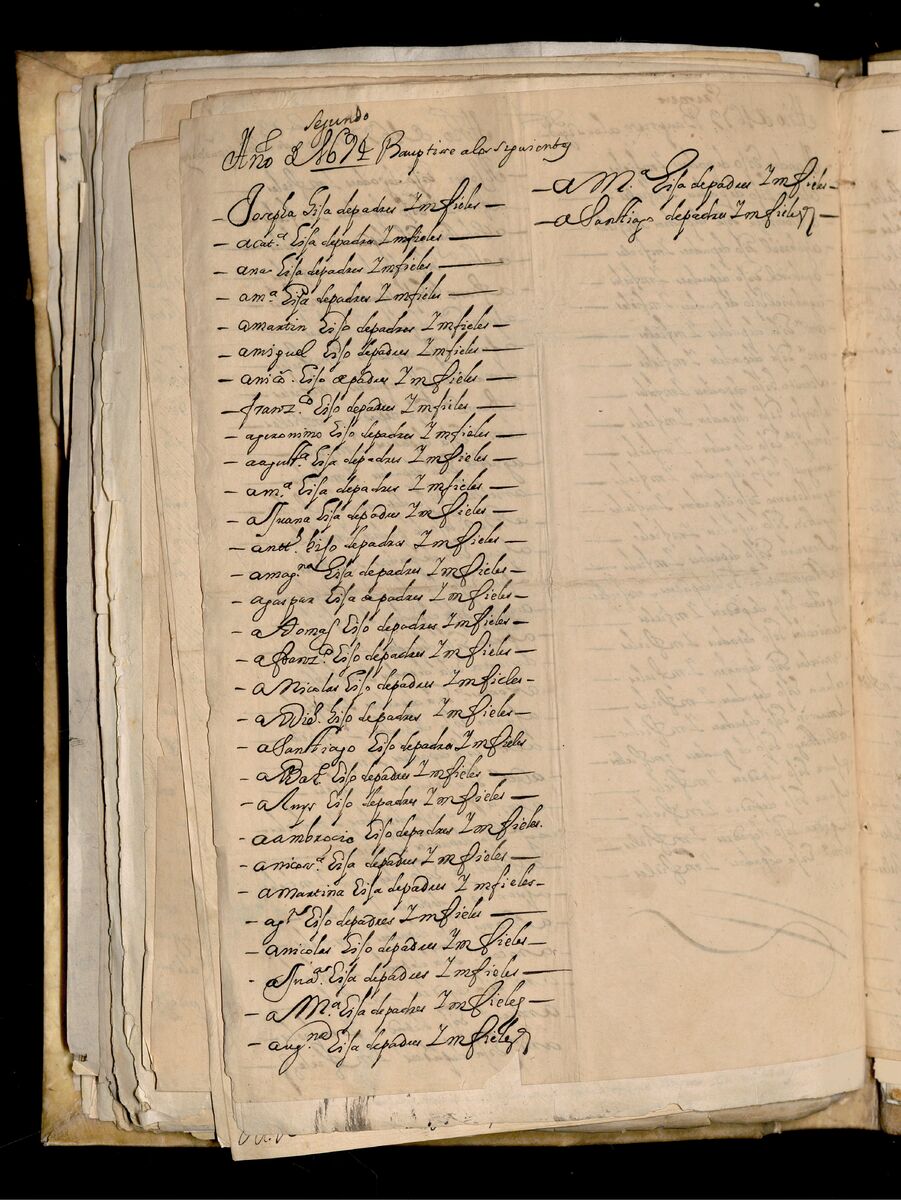 segundo
Año d 1694 Bauptise a los siguientes
– Josepha hija de padres Imfieles –
– a cat.ª hija de padres Imfieles –
– ana hija de padres Imfieles –
– a m.ª hija de padres Imfieles –
– a martin hijo de padres Imfieles –
– a miguel hijo de padres Imfieles –
– a nico. hijo de padres Imfieles –
– franz.co hijo de padres Imfieles –
– a geronimo hijo de padres Imfieles –
– a agust.ª hija de padres Imfieles –
– a m.ª hija de padres Imfieles –
– a Juana hija de padres Imfieles –
– a antt.º hijo de padres Imfieles –
– a mag.na hija de padres Imfieles –
– a gaspar hija de padres Imfieles –
– a Tomas hijo de padres Imfieles –
– a franz.co hijo de padres Imfieles –
– a Nicolas hijo de padres Imfieles –
– a hijo de padres Imfieles –
– a Santtiago hijo de padres Imfieles
– a Bar.e hijo de padres Imfieles –
– a Luys hijo de padres Imfieles –
– a ambrocio hijo de padres Imfieles.
– a hija de padres Imfieles –
– a martina hija de padres Imfieles –
– a hijo de padres Imfieles –
– a nicolas hijo de padres Imfieles –
– a Jua.ª hija de padres Imfieles –
– a M.ª hija de padres Imfieles –
– hija de padres Imfieles
– a M.ª hija de padres Imfieles –
– a Santtiago de padres Imfieles –